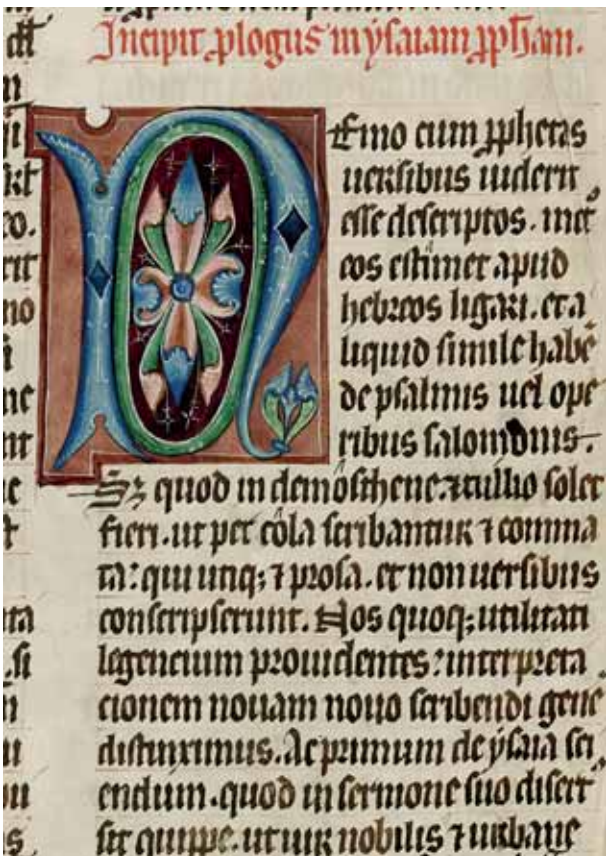 Incipit plogus in ysaiam ppham.
Nemo cum pphetas
uersibus uiderit
esse descriptos. met
eos estimet apud
hebreos ligari. et a
liquid simile habe
de psalmis uel ope
ribus salomonis.
Sꝫ quod in demosthene. ⁊ tullio solet
fieri. ut per cola scribantur ⁊ comma
ta: qui utiqꝫ ⁊ prosa. et non uersibus
conscripserunt. Nos quoqꝫ utilitati
legencium prouidentes: interpreta
cionem nouam nouo scribendi gene
distinximus. Ac primum de ysaia sci
endum. quod in sermone suo disert
sit quippe. ut uir nobilis ⁊ urbane